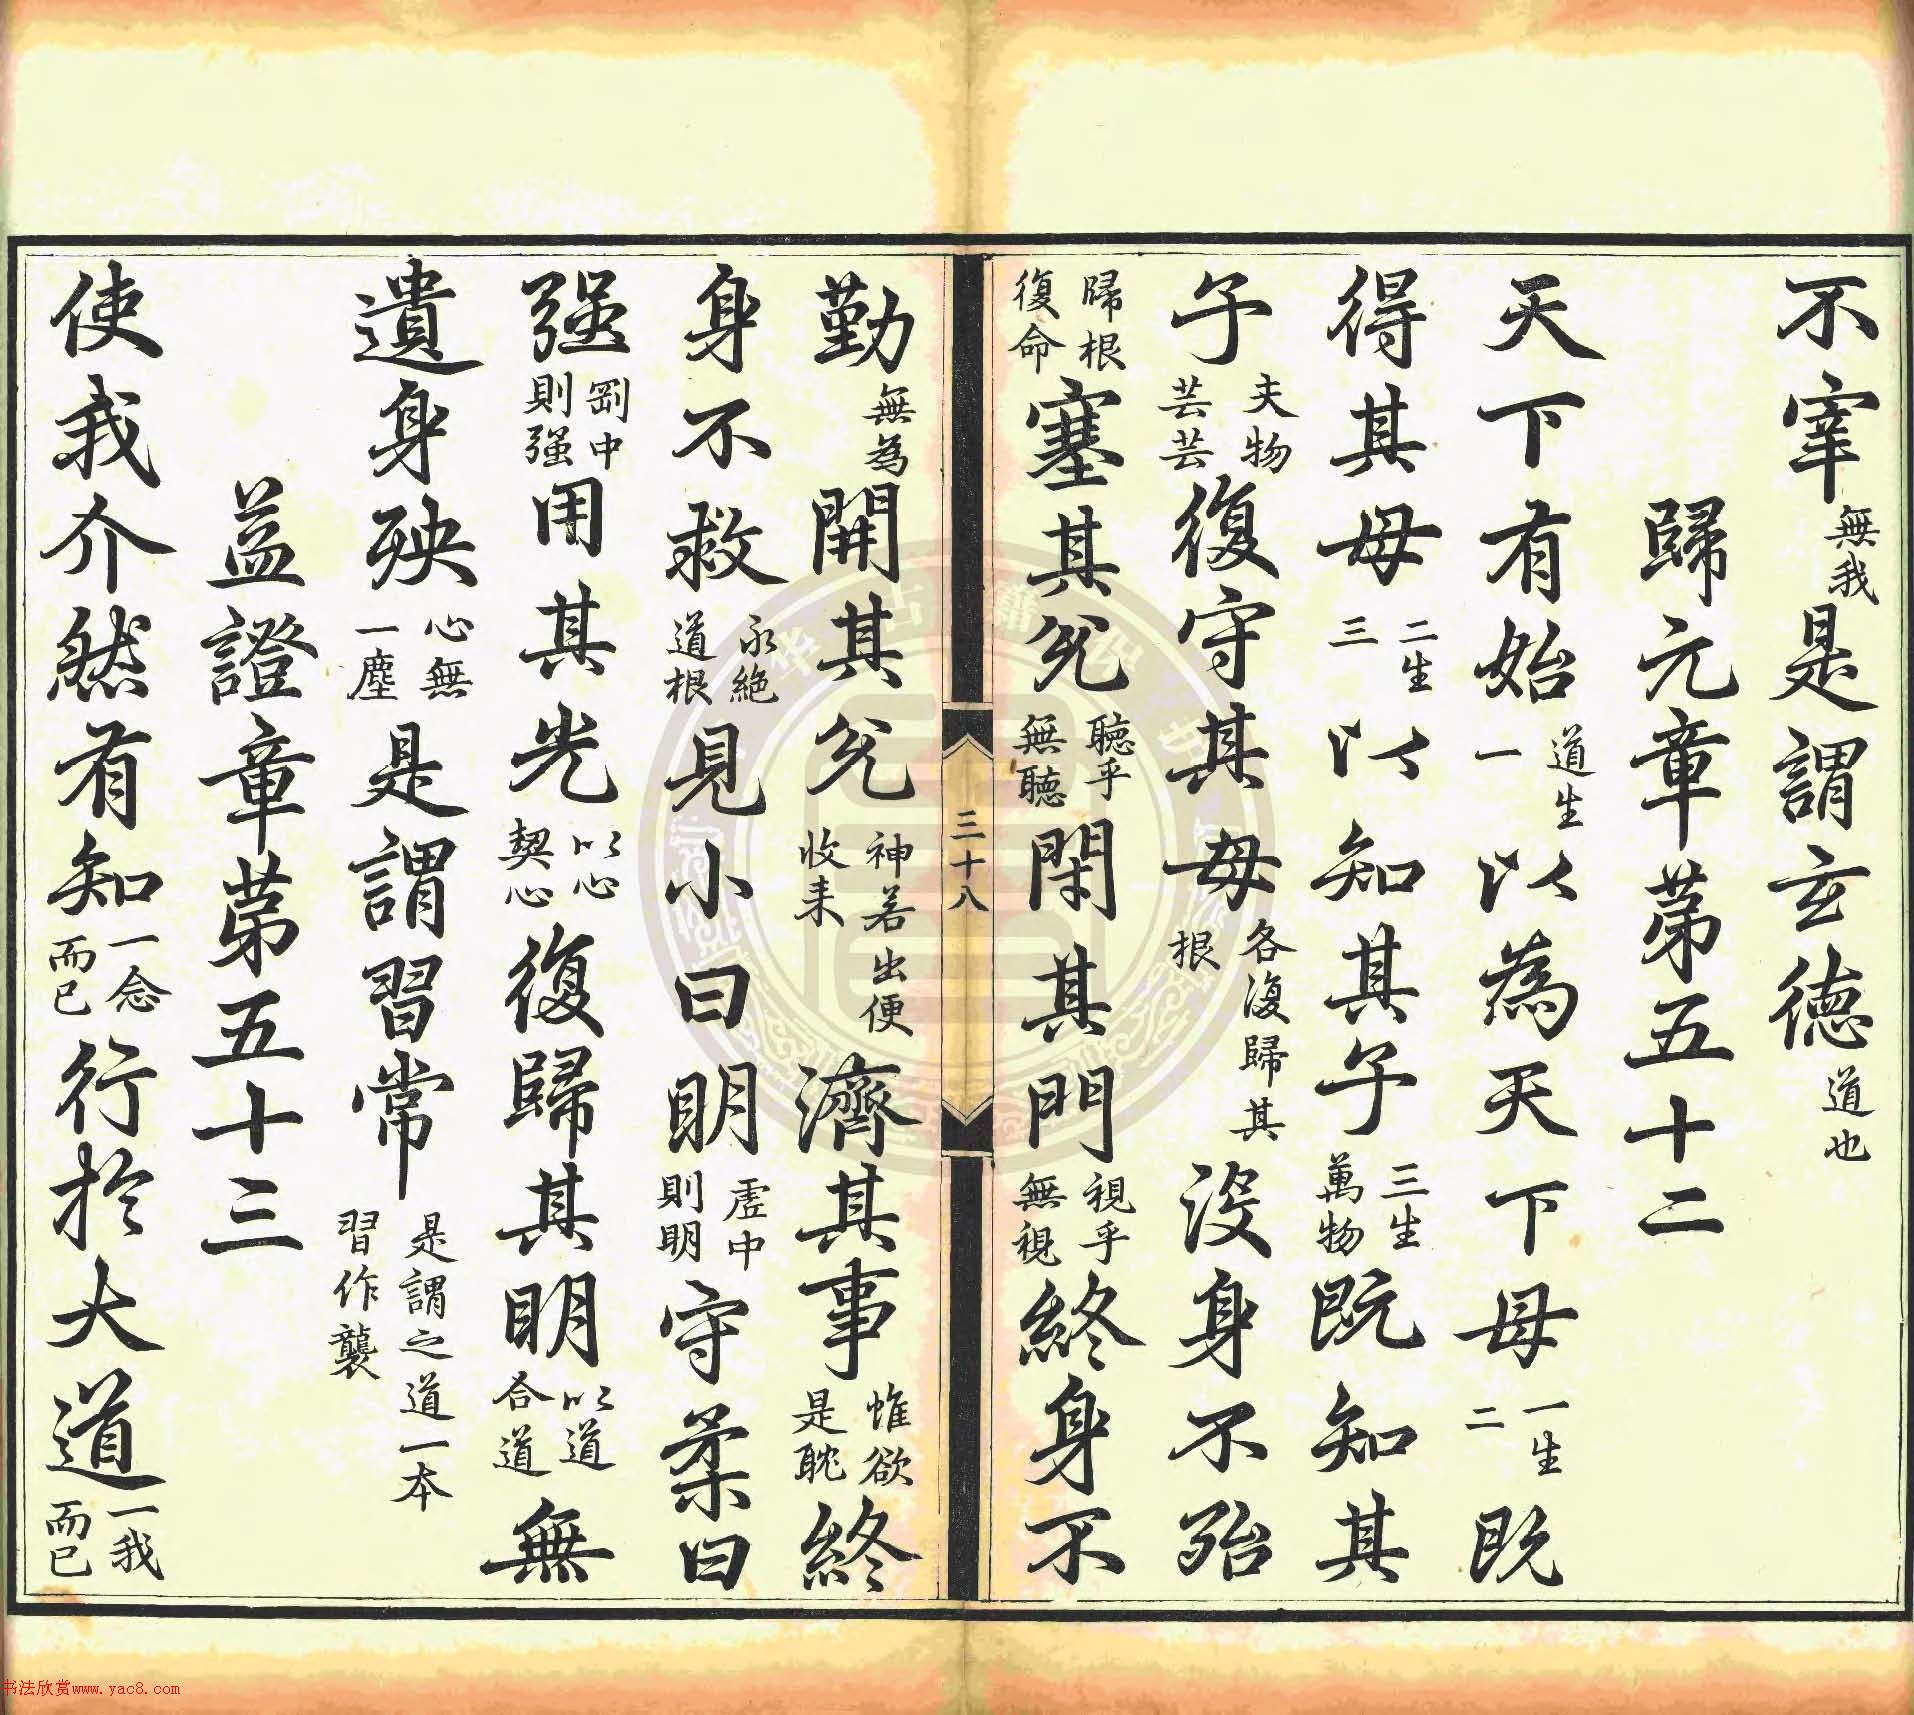 不宰無我是謂玄德道也
歸元章第五十二
天下有始道生一以為天下母一生二既
得其母二生三以知其子三生萬物既知其
子夫物芸芸復守其母各復歸其根沒身不殆
歸根復命塞其兌聽乎無聽閉其門視乎無視終身不
三十八
勤無為開其兌神若出便收来濟其事惟欲是耽終
身不救永絶道根見小曰明虛中則明守柔曰
强剛中則强用其光以心契心復歸其明以道合道無
遺身殃心無一塵是謂習常是謂之道一本習作襲
益證章第五十三
使我介然有知一念而已行於大道一我而已
书法欣赏www.yac8.com